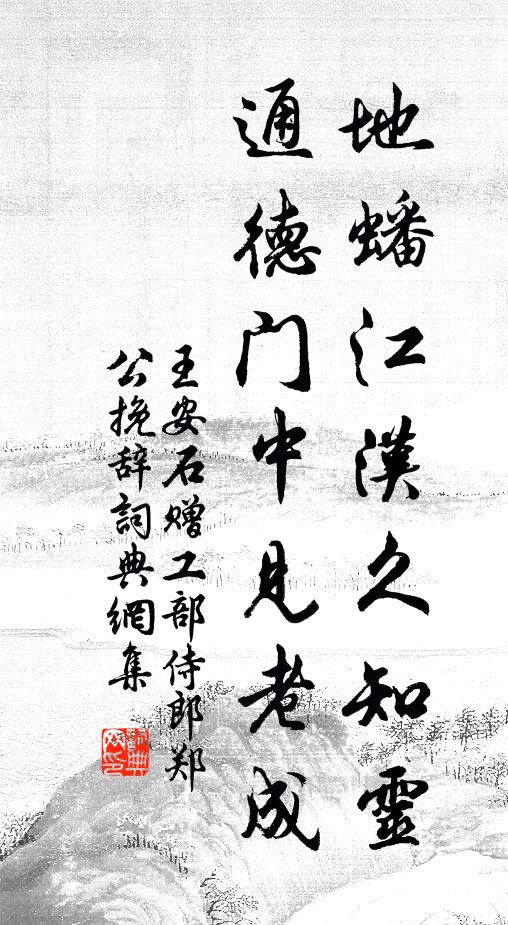 地蟠江漢久知靈
通德门中見老成
王安石赠工部侍郎郑
公挽辞詞典網集